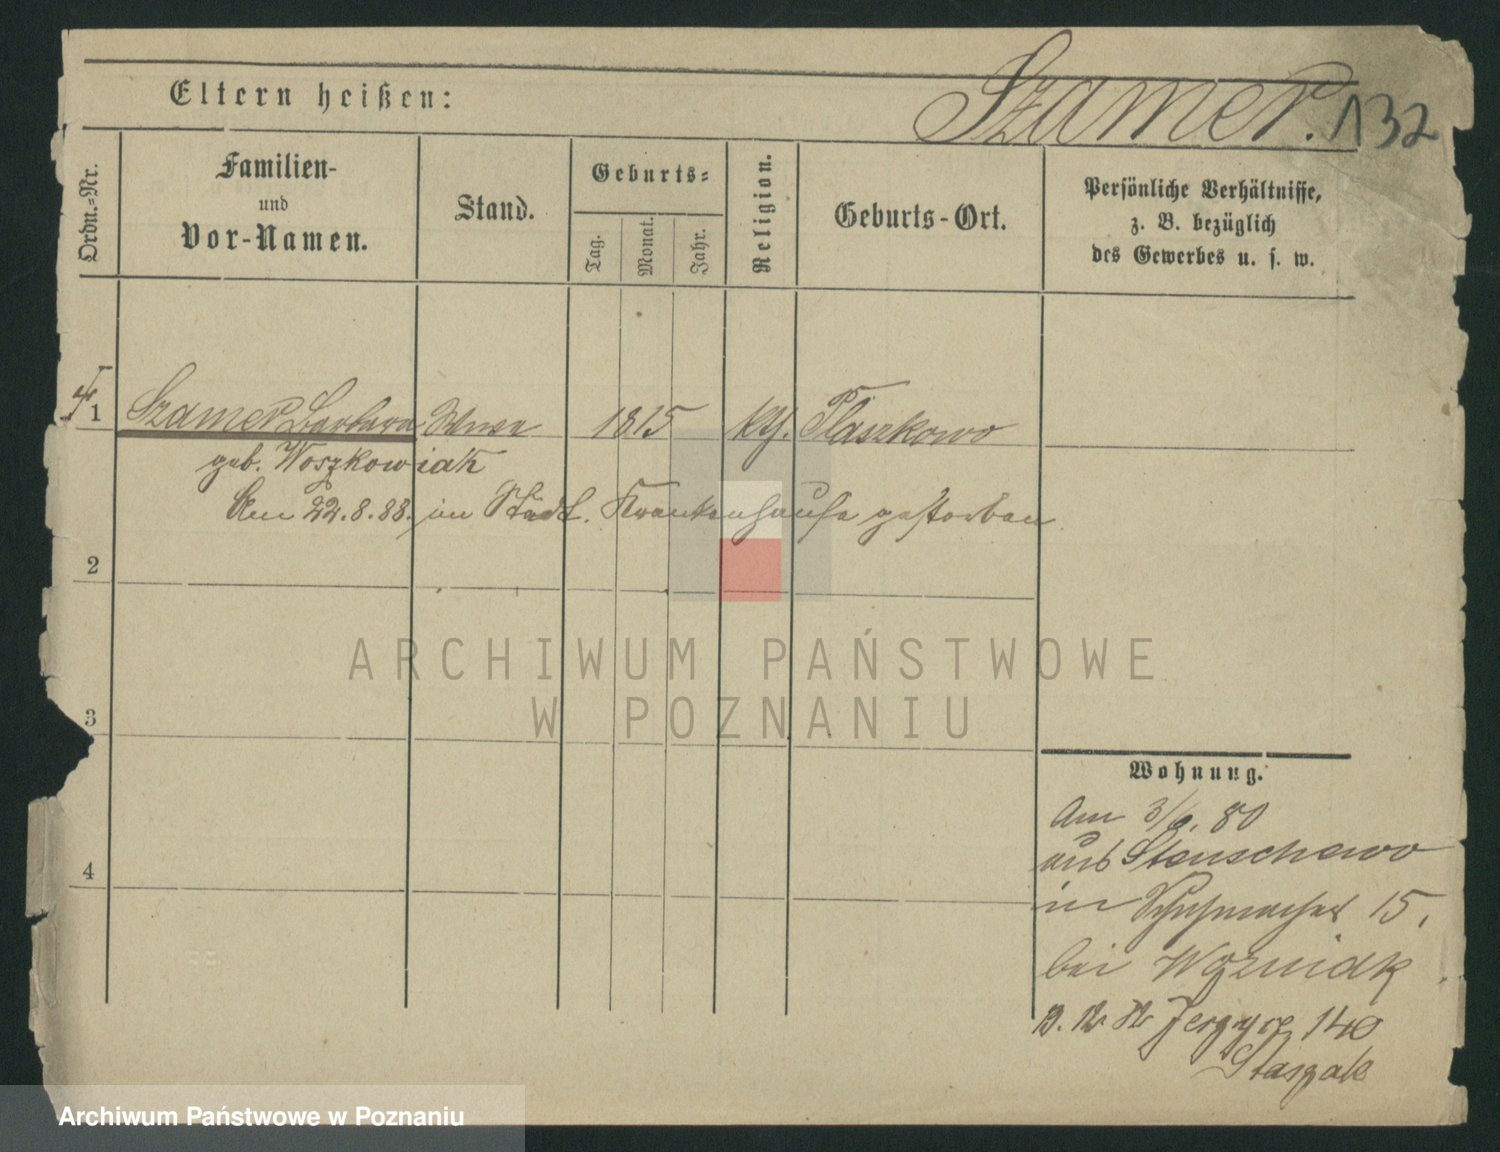 Eltern heißen:
Szamer. 132
Ordn.-Nr.
Familien-
und
Vor-Namen.
Stand.
Geburts-
Tag.
Monat.
Jahr.
Religion.
Geburts-Ort.
Persönliche Verhältnisse,
z. B. bezüglich
des Gewerbes u. s. w.
1 Szamer Barbara Wwe 1815 kth. Ptaszkowo
geb. Woszkowiak
Am 22.8.88. im Städt. Krankenhause gestorben
2
3
4
Wohnung.
Am 80
aus Stenschewo
in Schuhmacher 15.
bei Wozniak
Jerzyce 140
Staszak
ARCHIWUM PAŃSTWOWE
W POZNANIU
Archiwum Państwowe w Poznaniu